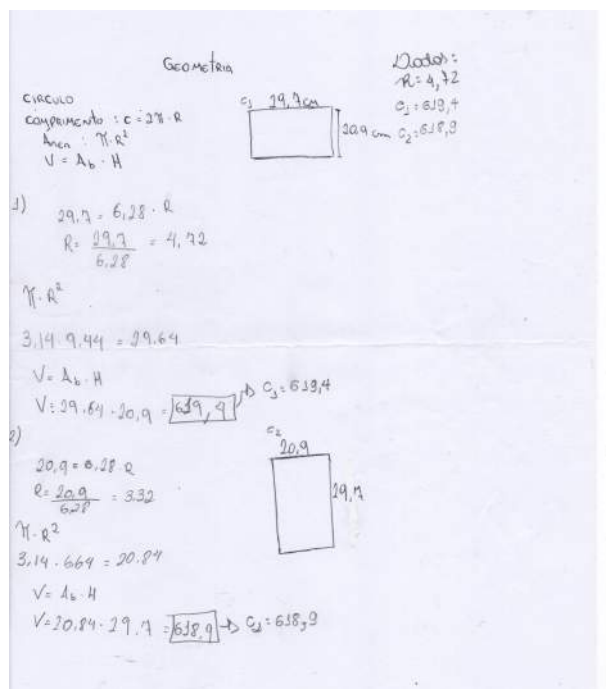 GEOMETRIA
Dados:
R = 4,72
C1 = 619,4
C2 = 618,9
CIRCULO
COMPRIMENTO : C = 2π · R
Área : π · R²
V = Ab · H
C1 29,7cm
20,9 cm
1)
29,7 = 6,28 · R
R = 29,7 / 6,28 = 4,72
π · R²
3,14 · 9,44 = 29.64
V = Ab · H
V = 29.64 · 20,9 = 619,4 → C1 = 619,4
2)
C2
20,9
29,7
20,9 = 6,28 · R
R = 20,9 / 6,28 = 3.32
π · R²
3,14 · 664 = 20.84
V = Ab · H
V = 20,84 · 29,7 = 618,9 → C2 = 618,9